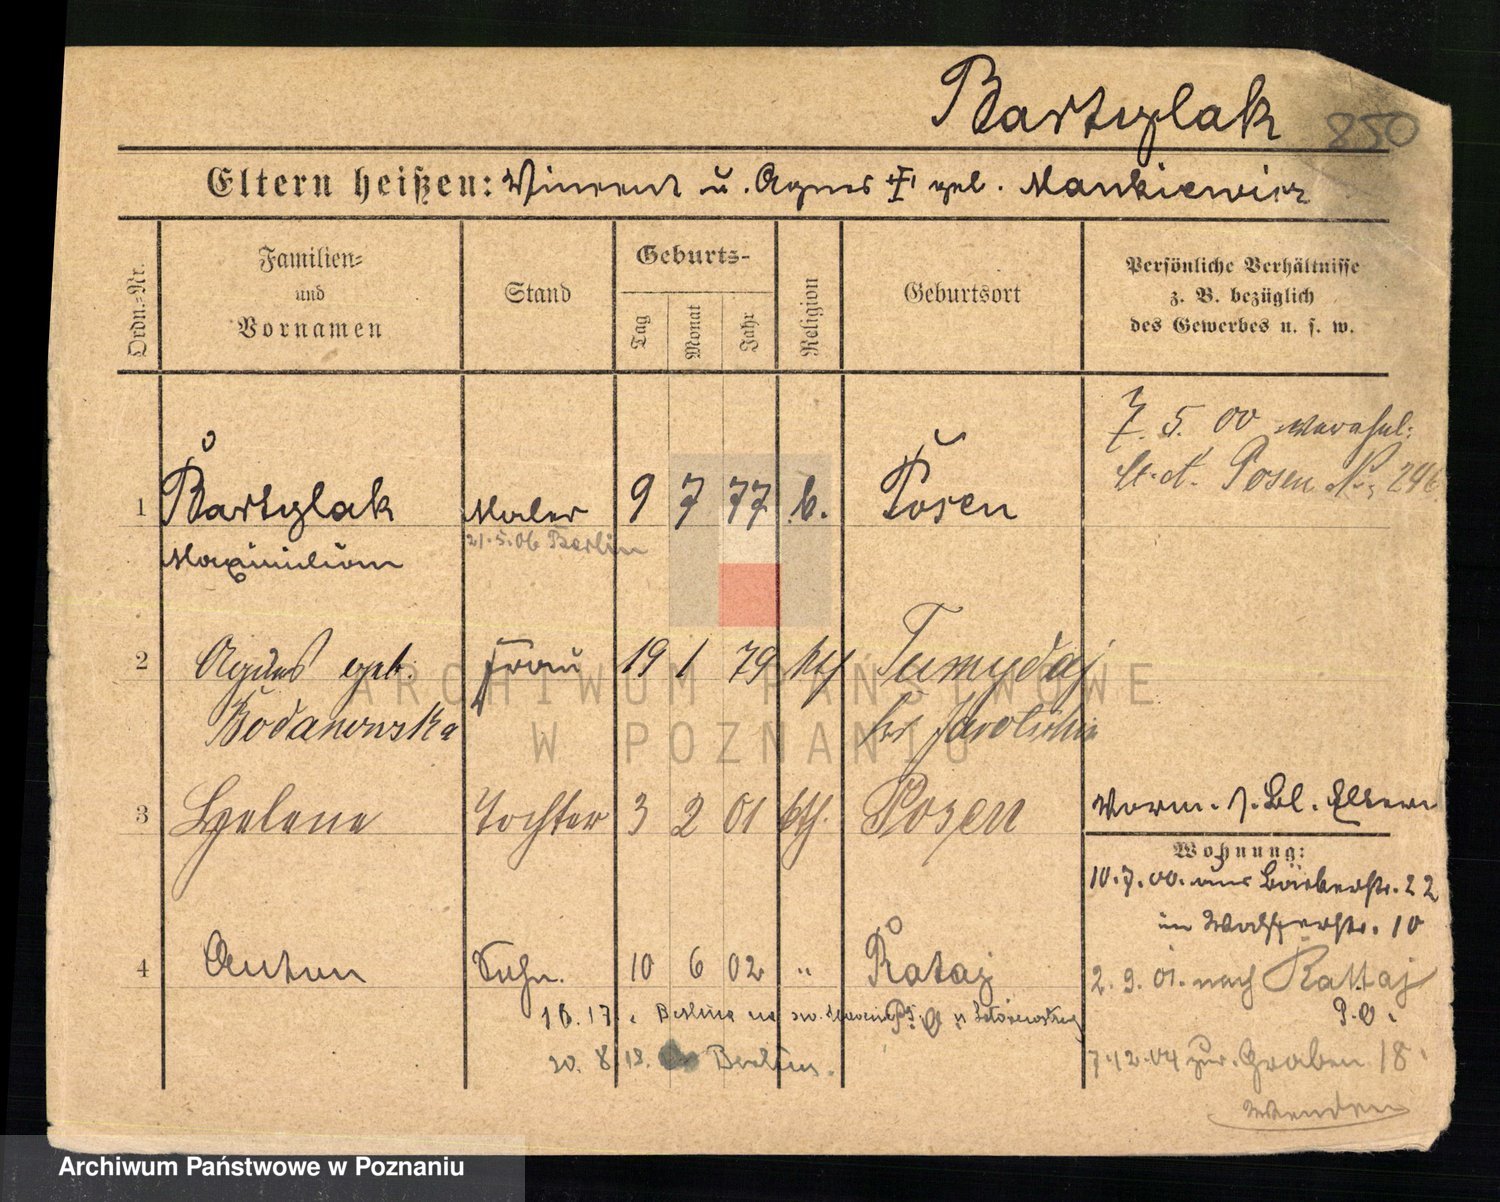 Bartzlak 850
Eltern heißen: Vincent u. Agnes geb. Mankiewicz
Ordn.-Nr.
Familien-
und
Vornamen
Stand
Geburts-
Tag
Monat
Jahr
Religion
Geburtsort
Persönliche Verhältnisse
z. B. bezüglich
des Gewerbes u. s. w.
7. 5. 00 verehel:
St. A. Posen No 246
1 Bartzlak Maler 9 7 77 k. Posen
21.5.06 Berlin
Maximilian
2 Agnes geb. Frau 19 1 79 kth Tumydaj
Bodanowska Jarotschin
3 Helene Tochter 3 2 01 kth. Posen
Vorm. s. Bl. Eltern
Wohnung:
10.7.00. aus Bäckerstr. 22
in Wallischerstr. 10
4 Anton Sohn. 10 6 02 " Rataj
2. 9. 01. nach Rattaj
P. O.
16. 17.
20. 8. 18. Berlin.
7.12.04 zur. Graben 18.
Wenden
ARCHIWUM PAŃSTWOWE
W POZNANIU
Archiwum Państwowe w Poznaniu